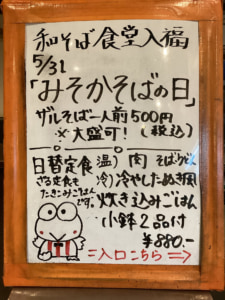 和そば食堂入福
5/31
「みそかそばの日」
ザルそば一人前500円
※大盛可! (税込)
日替定食 温) 肉 そばうどん
ざる定食も 冷) 冷やしたぬき風
たきこみごはん 炊き込みごはん
です。 小鉢2品付
¥880-
=入口こちら⇒